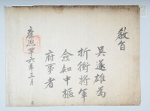 敎旨
吳蓮雄爲
折衝將軍
僉知中樞
府事者
康熙 六年三月